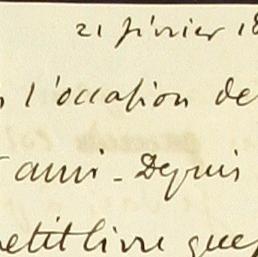 21 février 18
l'occasion de
ami - Depuis
petit livre que